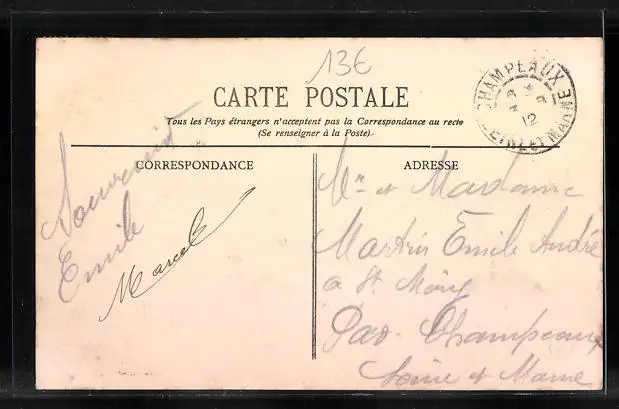 13E
CARTE POSTALE
Tous les Pays étrangers n'acceptent pas la Correspondance au recto
(Se renseigner à la Poste).
CHAMPEAUX
12
SEINE ET MARNE
CORRESPONDANCE
ADRESSE
Souvenir
Emile
Marcel
Mr et Madame
Martin Emile André
a St Méry
Par Champeaux
Seine et Marne